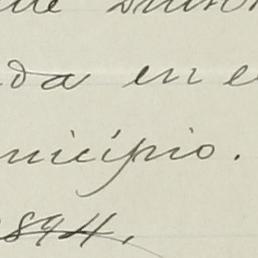 da en e
nicípio.
894,